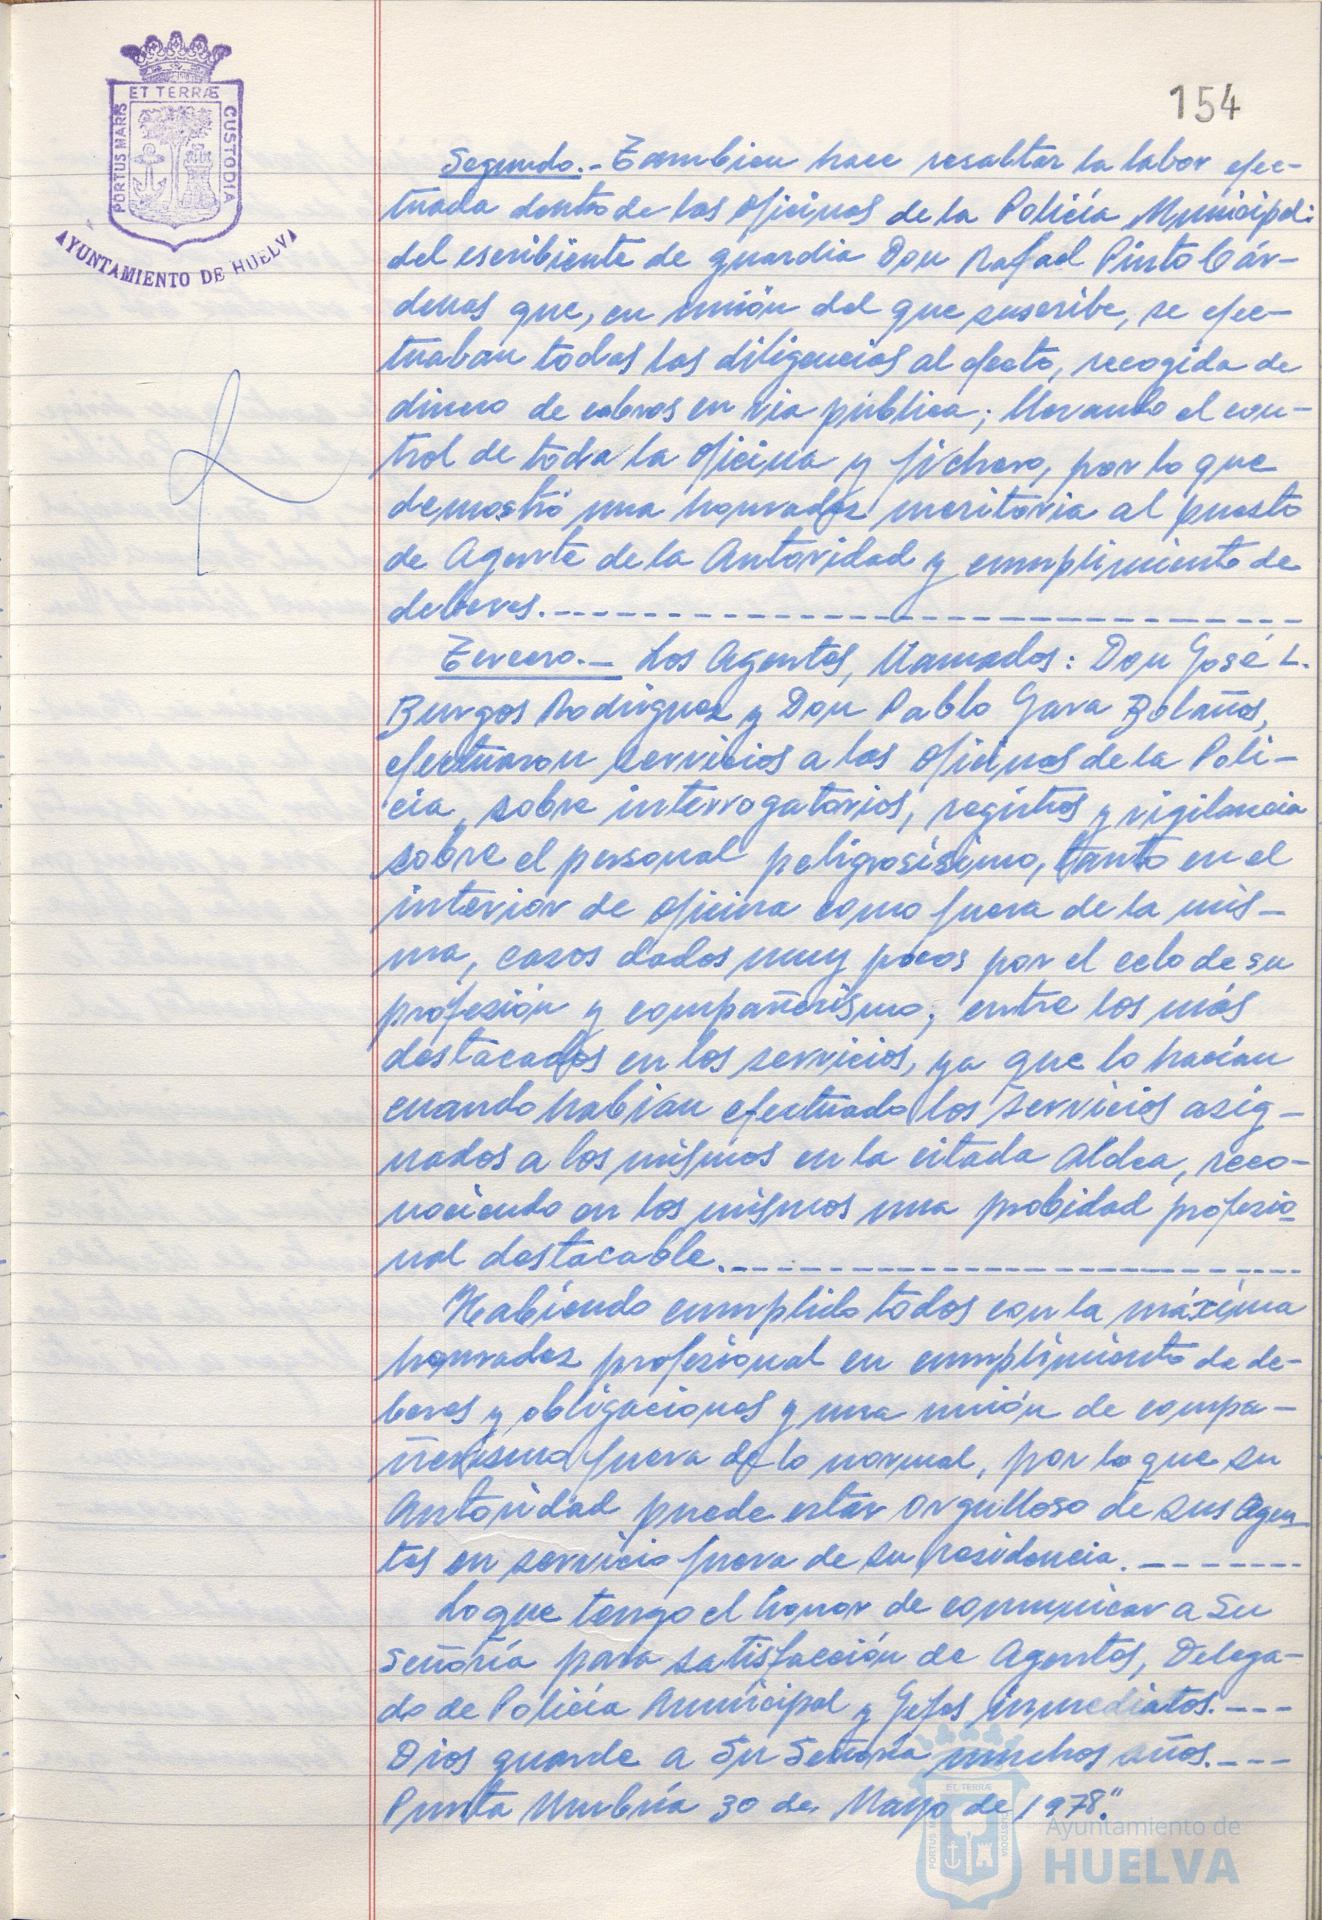 ET TERRÆ
PORTUS MARIS
CUSTODIA
AYUNTAMIENTO DE HUELVA
154
Segundo.- Tambien hace resaltar la labor efec-
tuada dentro de las oficinas de la Policía Municipal
del escribiente de guardia Don Rafael Pinto Cár-
denas que, en unión del que suscribe, se efec-
tuaban todas las diligencias al efecto, recogida de
dinero de cobros en via pública; llevando el con-
trol de toda la oficina y fichero, por lo que
demostró una honradez meritoria al puesto
de Agente de la Autoridad y cumplimiento de
deberes.
Tercero.- Los Agentes, llamados: Don José L.
Burgos Rodriguez y Don Pablo Gara Bolaños,
efectuaron servicios a las oficinas de la Poli-
cia, sobre interrogatorios, registros y vigilancia
sobre el personal peligrosísimo, tanto en el
interior de oficina como fuera de la mis-
ma, casos dados muy pocos por el celo de su
profesión y compañerismo; entre los más
destacados en los servicios, ya que lo hacian
cuando habian efectuado los servicios asig-
nados a los mismos en la citada Aldea, reco-
nociendo en los mismos una probidad profesio-
nal destacable.
Habiendo cumplido todos con la máxima
honradez profesional en cumplimiento de de-
beres y obligaciones y una unión de compa-
ñerismo fuera de lo normal, por lo que su
Autoridad puede estar orgulloso de sus Agen-
tes en servicio fuera de su residencia.
Lo que tengo el honor de comunicar a Su
Señoría para satisfacción de Agentes, Delega-
do de Policía Municipal y Gefes inmediatos.
Dios guarde a Su Señoría muchos años.
Punta Umbría 30 de Mayo de 1978."
ET TERRÆ
PORTUS MARIS
CUSTODIA
Ayuntamiento de
HUELVA